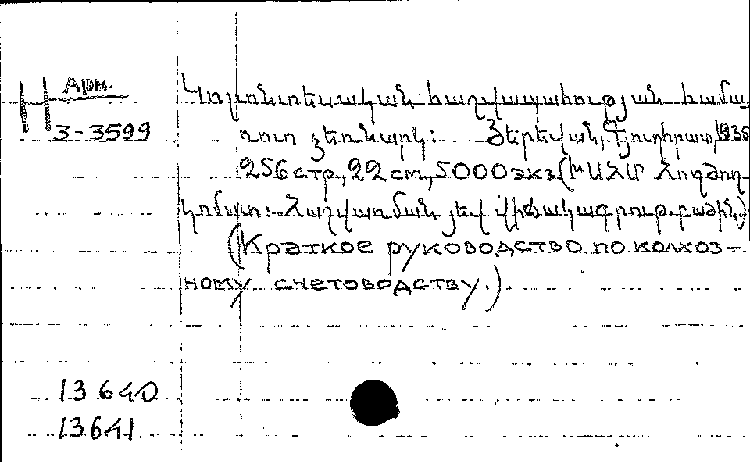 Арм.
H
3-3599
Կոլտնտեսական հաշվապահության համա
ռոտ ձեռնարկ: Յերեվան, Գյուղհրատ, 1936
256 стр., 22 см, 5000 экз. (ԽՍՀՄ Հողժող
կոմատ: Հաշվառման յեվ վիճակագրութ. բաժին)
(Краткое руководство по колхоз-
ному счетоводству.)
13640
13641